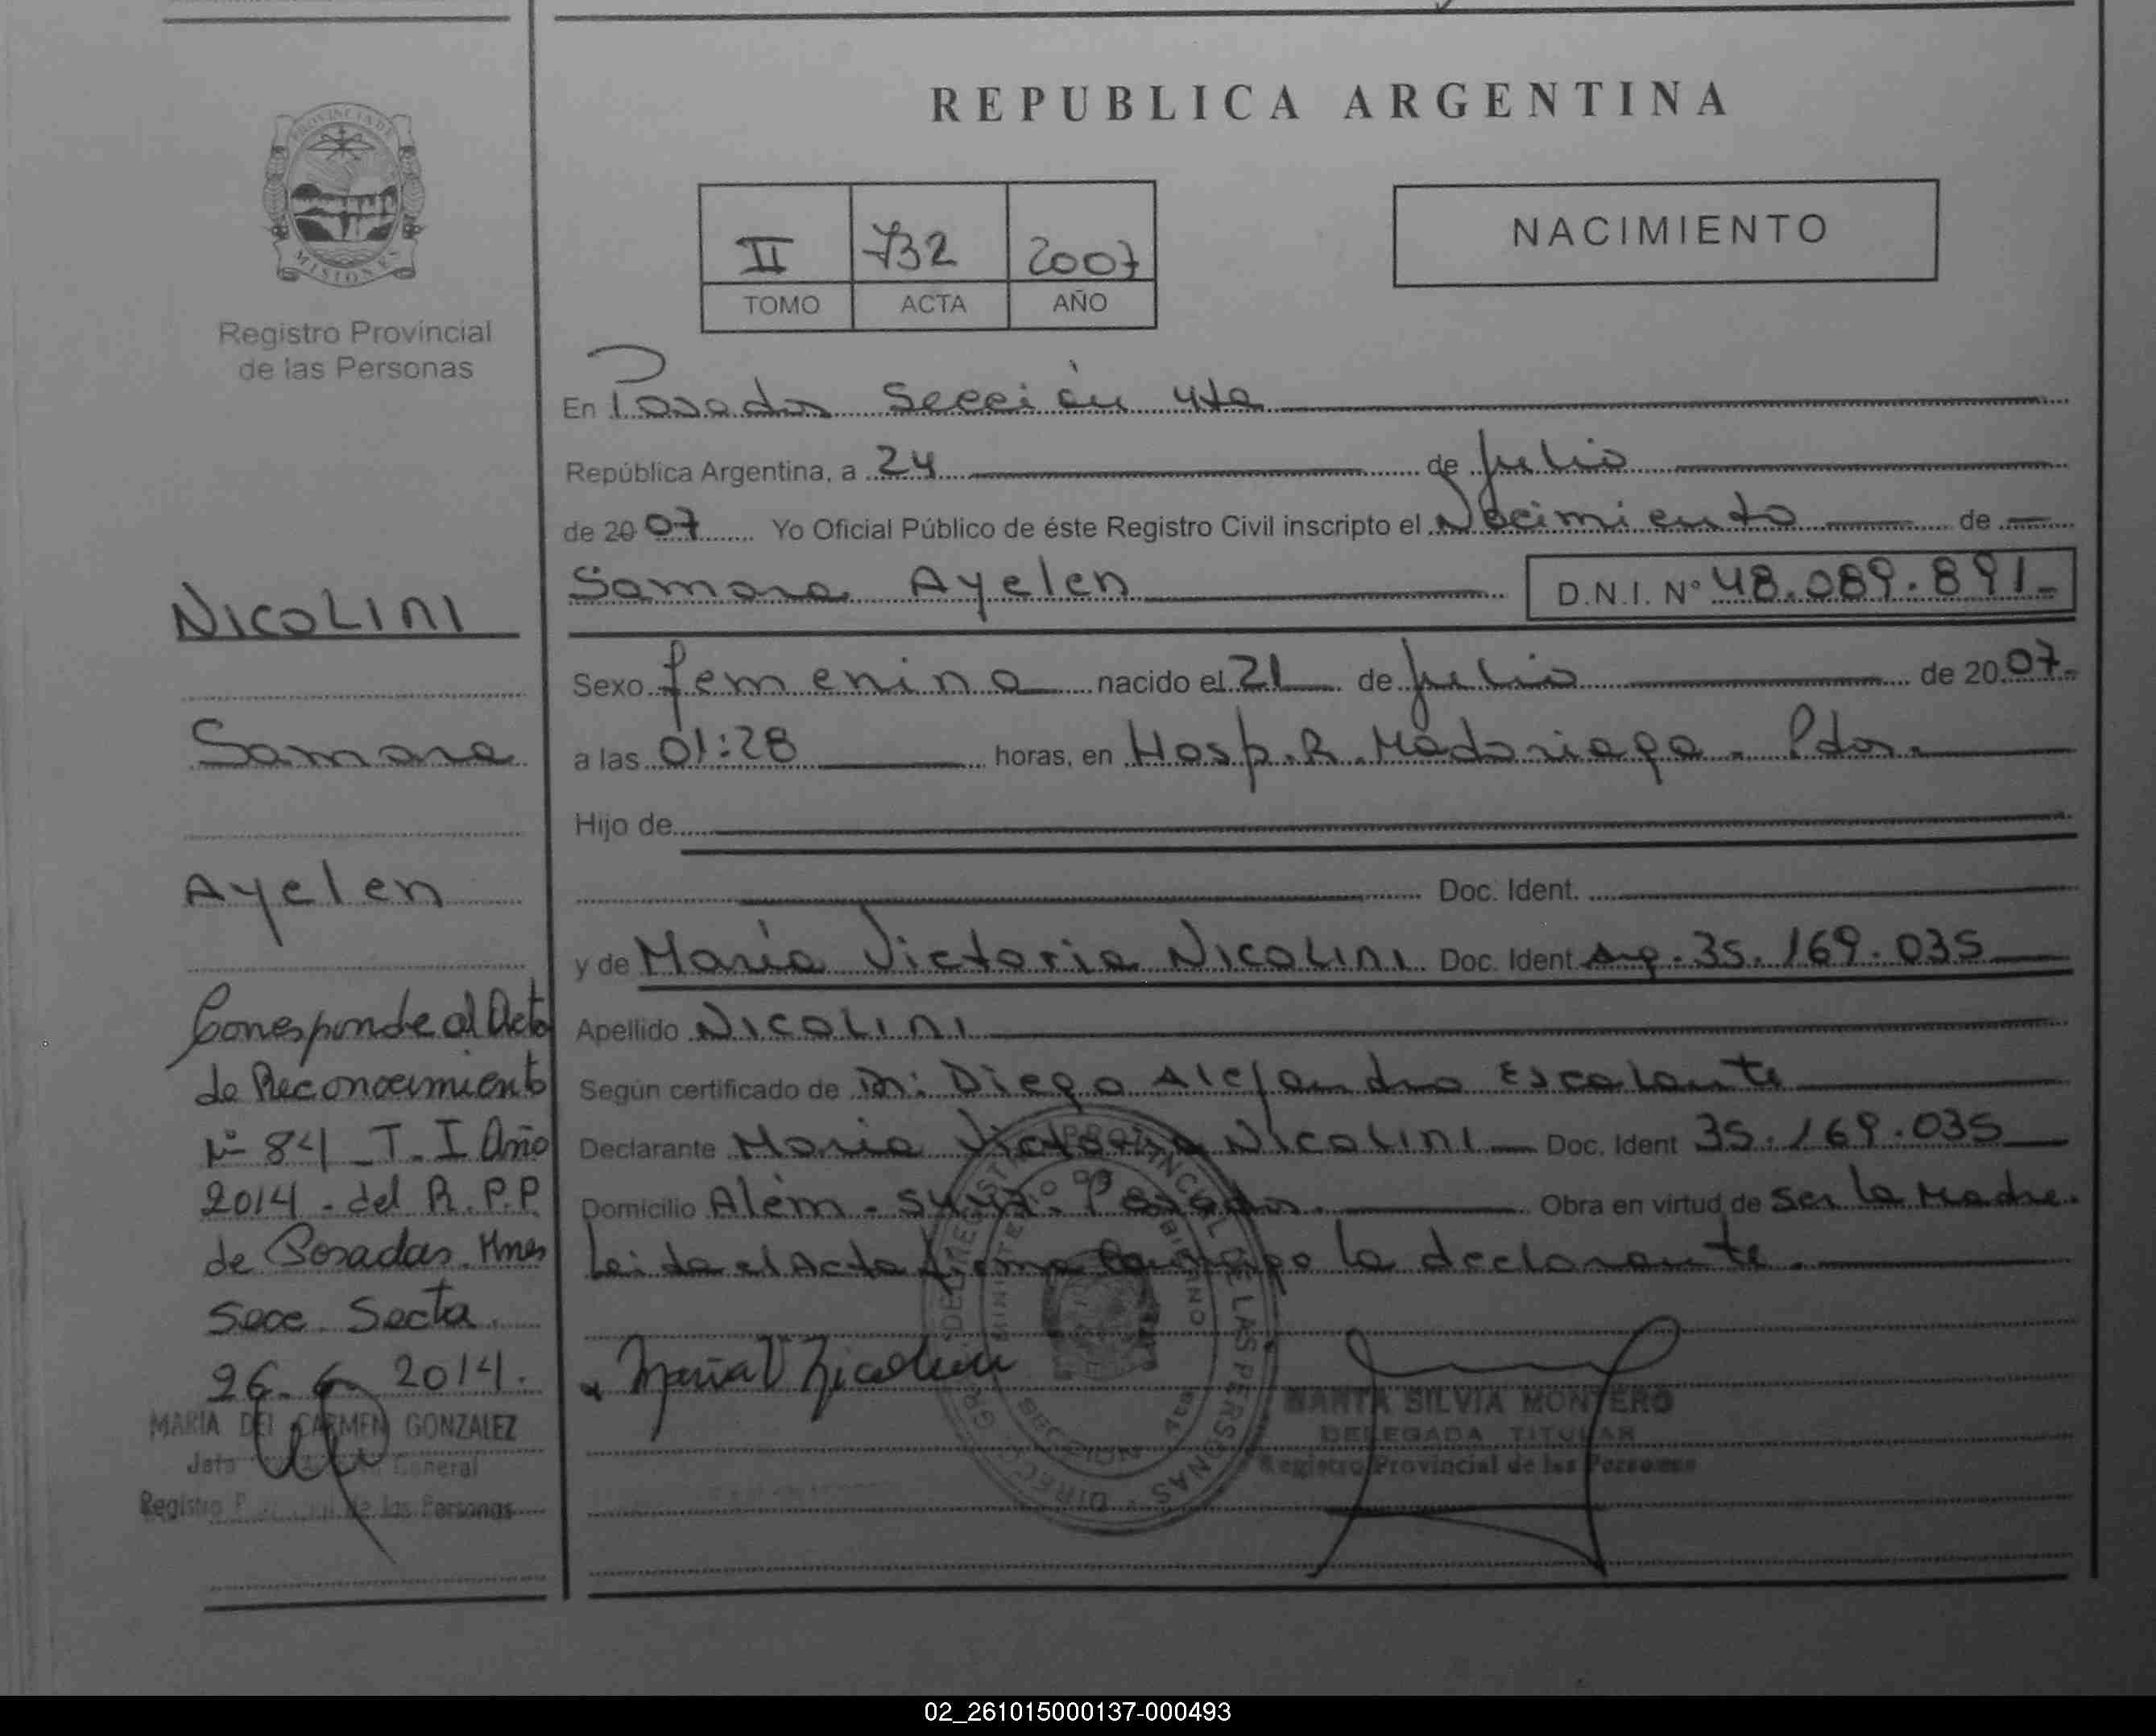 REPUBLICA ARGENTINA
PROVINCIA DE
MISIONES
Registro Provincial
de las Personas
II 732 2007
TOMO ACTA AÑO
NACIMIENTO
En Posadas Sección 4ta
República Argentina, a 24 de Julio
de 2007 Yo Oficial Público de éste Registro Civil inscripto el Nacimiento de
Samara Ayelen D.N.I. N° 48.089.891-
Sexo femenina nacido el 21 de Julio de 2007-
a las 01:28 horas, en Hosp. R. Madariaga - Pdas.
Hijo de
Doc. Ident.
y de María Victoria NICOLINI Doc. Ident Arg. 35.169.035
Apellido NICOLINI
Según certificado de Dr: Diego Alejandro Escalante
Declarante María Victoria NICOLINI Doc. Ident 35.169.035
Domicilio Além - Posadas. Obra en virtud de ser la Madre.
Leida el Acta firma conmigo la declarante.
María V Nicolini
MARTA SILVIA MONTERO
DELEGADA TITULAR
Registro Provincial de las Personas
NICOLINI
Samara
Ayelen
Corresponde al Acta
de Reconocimiento
N° 84 T. I Año
2014 - del R.P.P
de Posadas. Mnes
Secc. Sexta.
26. 6 2014.
MARIA DEL CARMEN GONZALEZ
General
Registro de las Personas
02_261015000137-000493